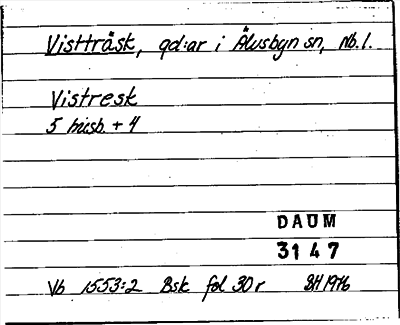 Vistträsk, gd:ar i Älvsbyn sn, Nb.l.
Vistresk
5 husb. + 4
DAUM
3147
Vb 1553:2 Bsk fol 30r SH 1976